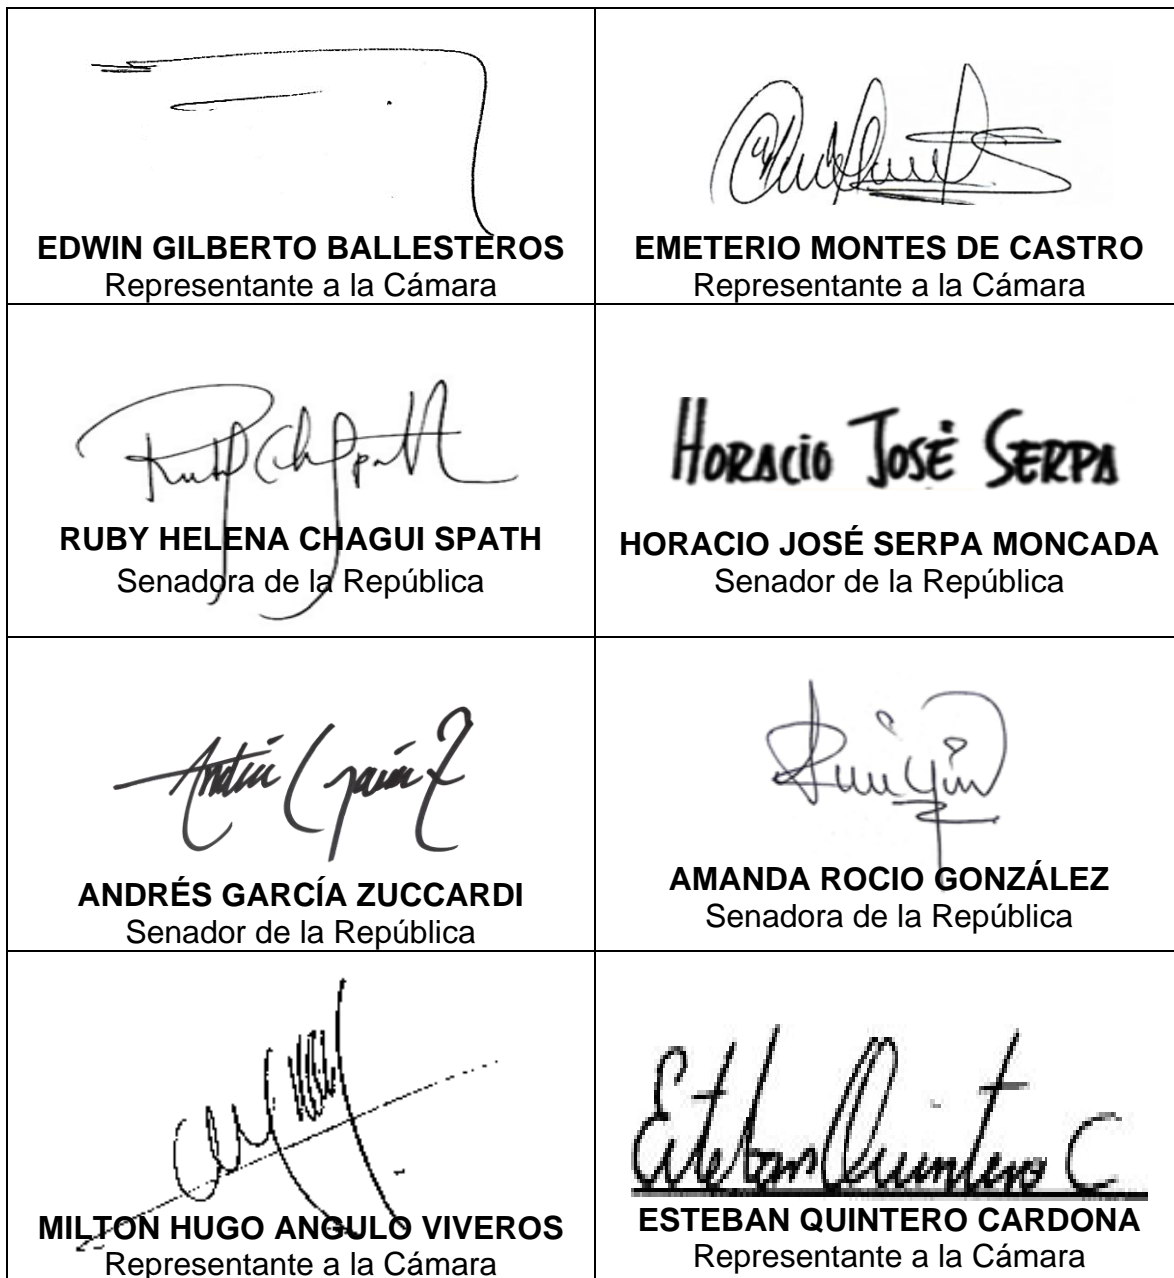 EDWIN GILBERTO BALLESTEROS
Representante a la Cámara
EMETERIO MONTES DE CASTRO
Representante a la Cámara
RUBY HELENA CHAGUI SPATH
Senadora de la República
HORACIO JOSÉ SERPA
HORACIO JOSÉ SERPA MONCADA
Senador de la República
ANDRÉS GARCÍA ZUCCARDI
Senador de la República
AMANDA ROCIO GONZÁLEZ
Senadora de la República
MILTON HUGO ANGULO VIVEROS
Representante a la Cámara
Esteban Quintero C
ESTEBAN QUINTERO CARDONA
Representante a la Cámara